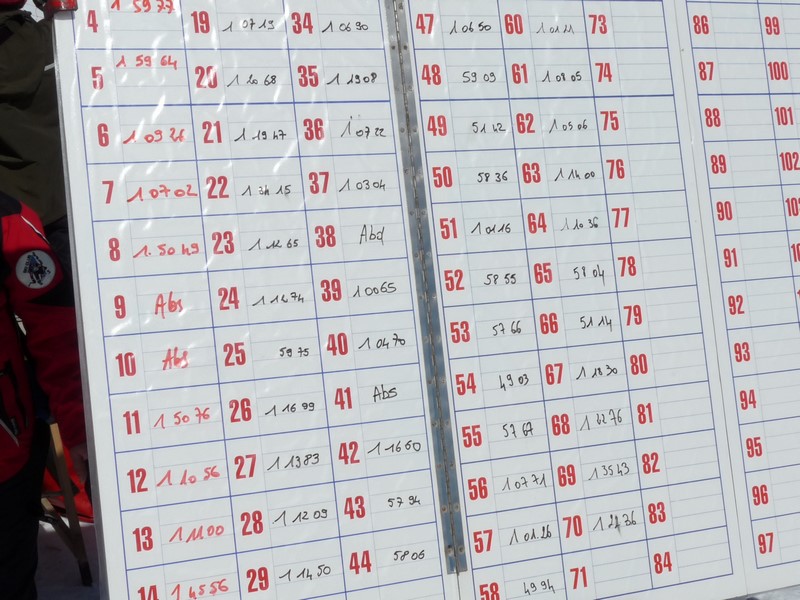 4 1 59 77 19 1 07 13 34 1 06 90 47 1 06 50 60 73 86 99
5 1 59 64 20 35 1 19 08 48 59 09 61 1 08 05 74 87 100
6 1 09 26 21 1 19 47 36 1 07 22 49 51 42 62 1 05 06 75 88 101
7 1 07 02 22 37 1 03 04 50 58 36 63 1 14 00 76 89 102
8 1. 50 49 23 1 12 65 38 Abd 51 1 01 16 64 1 10 36 77 90
9 Abs 24 1 12 74 39 1 00 65 52 58 55 65 58 04 78 91
10 Abs 25 59 75 40 1 04 70 53 57 66 66 51 14 79 92
11 1 50 76 26 1 16 99 41 Abs 54 49 03 67 1 18 30 80 93
12 1 10 56 27 1 13 83 42 1 16 60 55 57 67 68 1 22 76 81 94
13 1 11 00 28 1 12 09 43 57 94 56 1 07 71 69 1 35 43 82 95
14 1 45 56 29 1 14 50 44 58 06 57 1 01 26 70 83 96
58 49 94 71 84 97